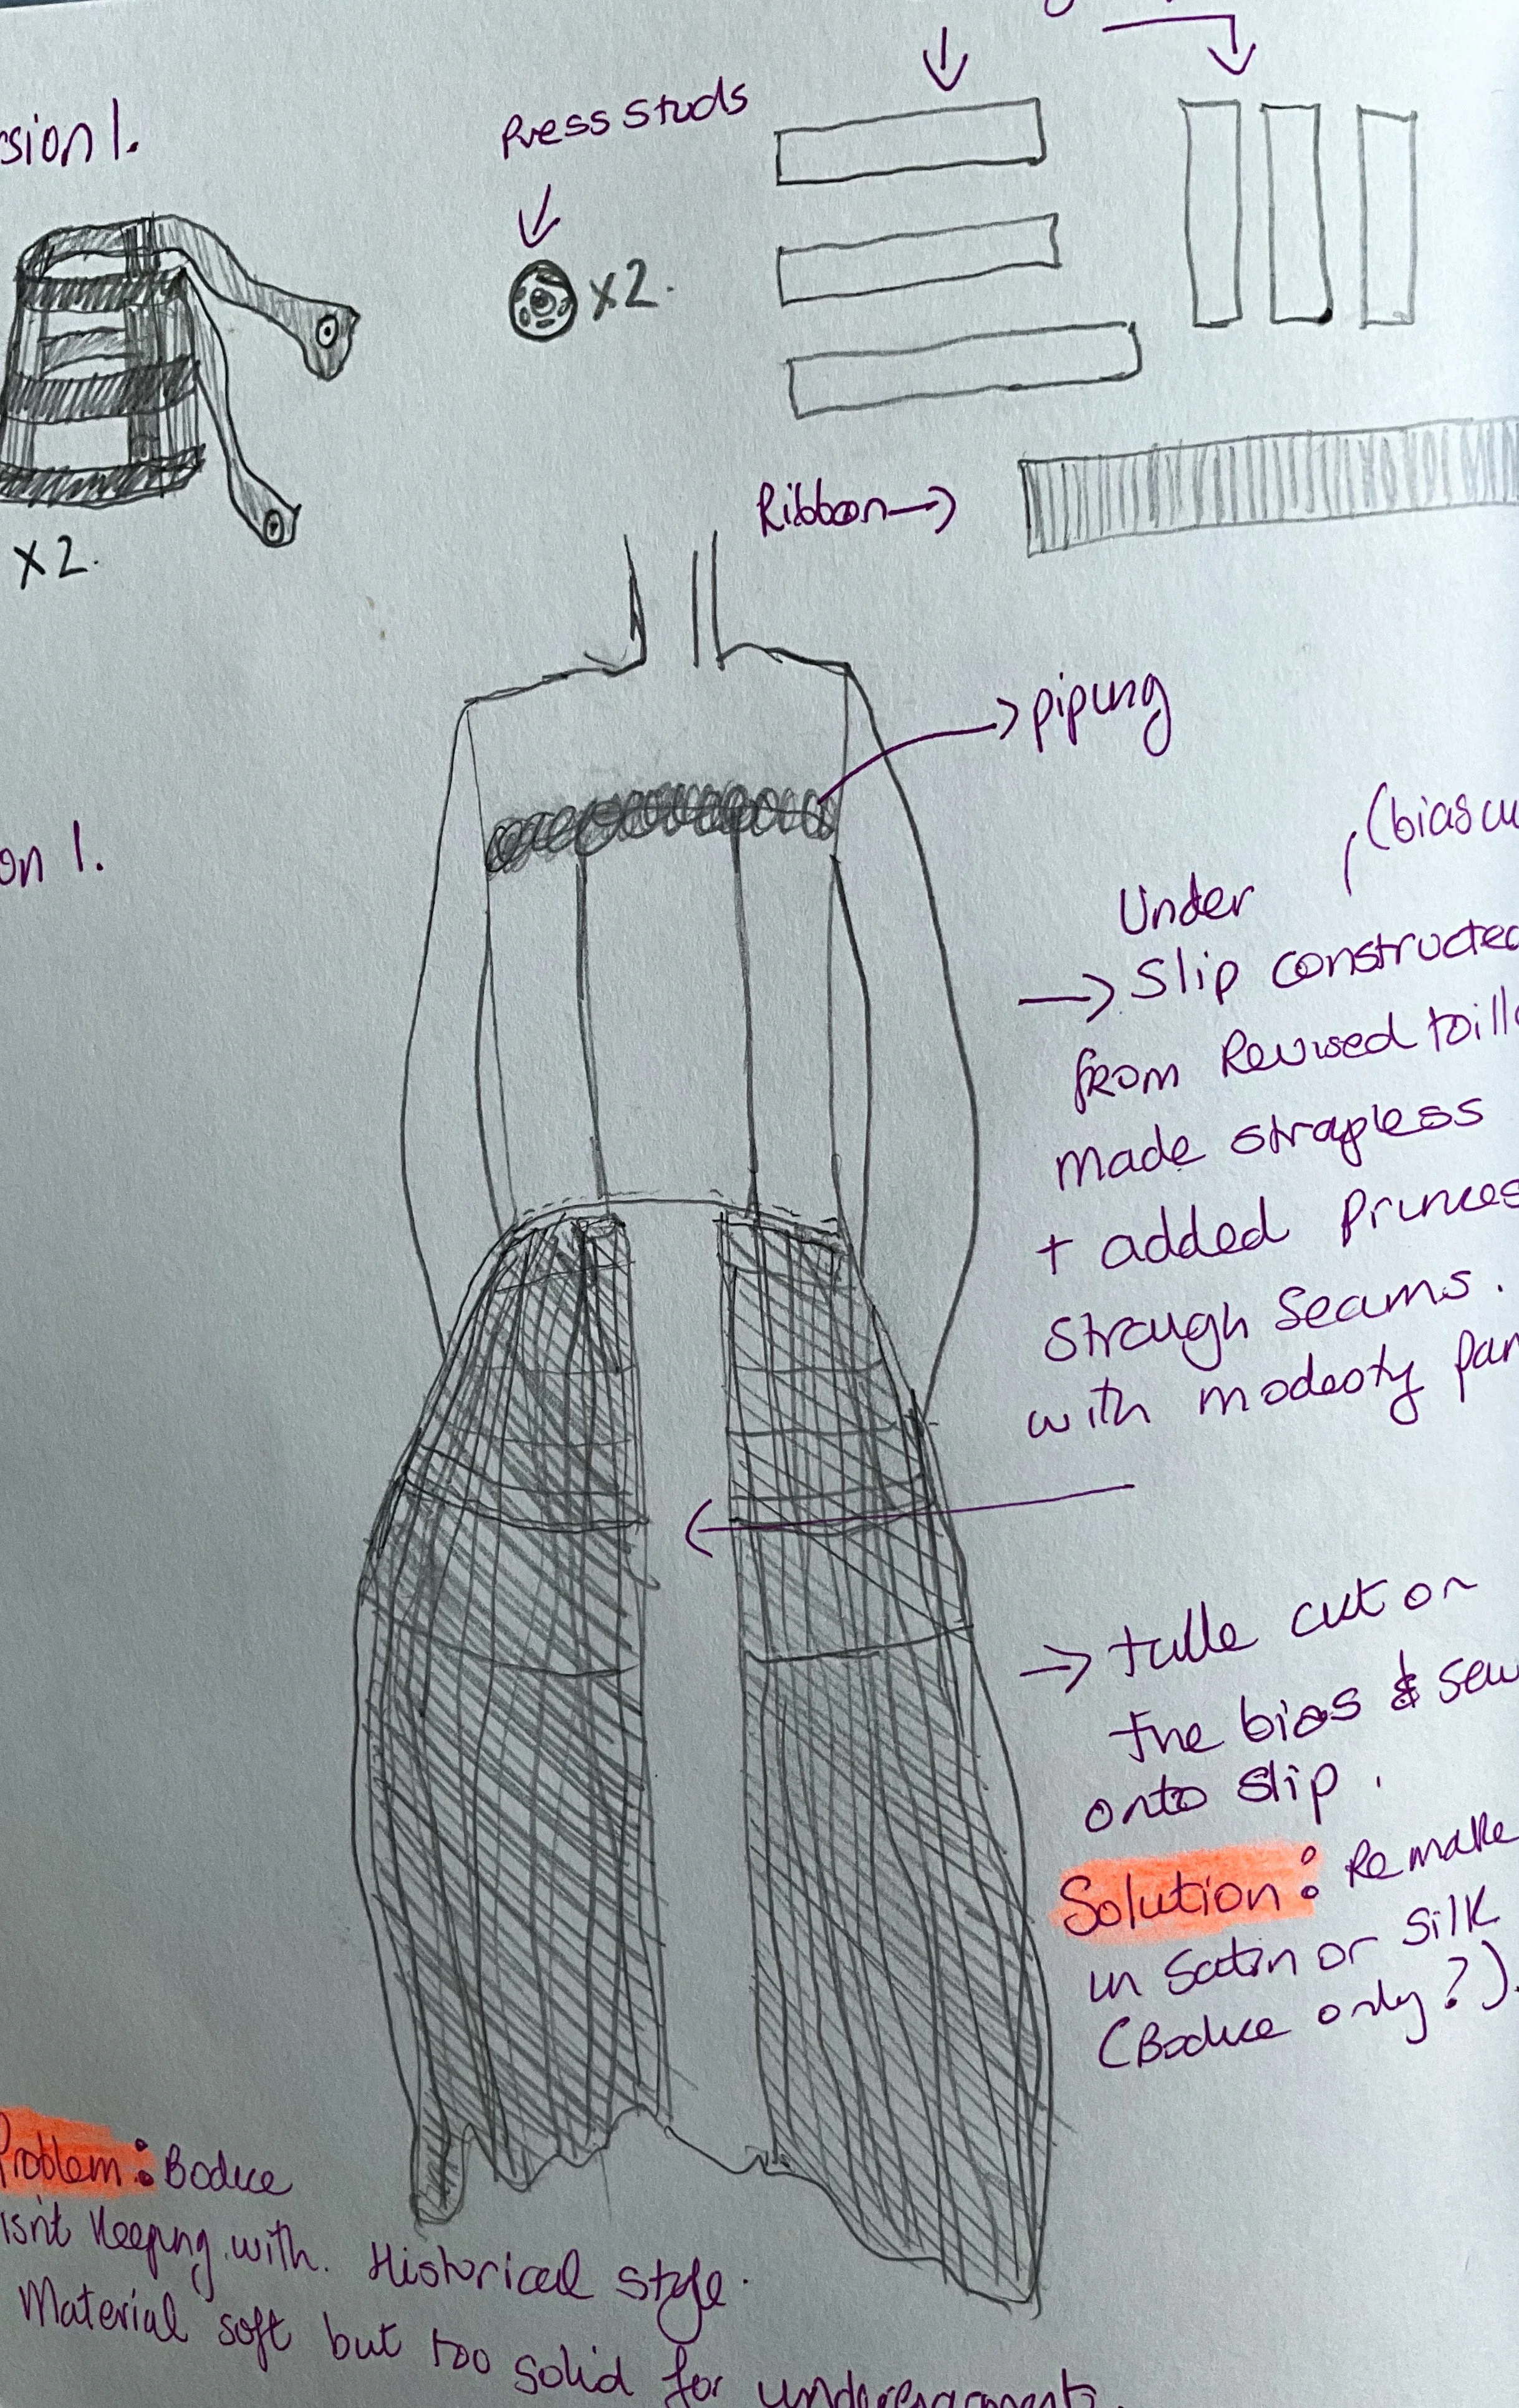 sion 1.
Press Studs
x2.
x2.
Ribbon →
→ piping
on 1.
(bias cu
Under
→ Slip constructed
from Revised toille
made strapless
+ added Princes
Strough Seams.
with modesty pan
→ tulle cut on
the bias & sew
onto slip.
Solution: Remake
in Satin or Silk
(Bodice only?).
Problem: Bodice
isn't Keeping with Historical style.
Material soft but too solid for undergarments.